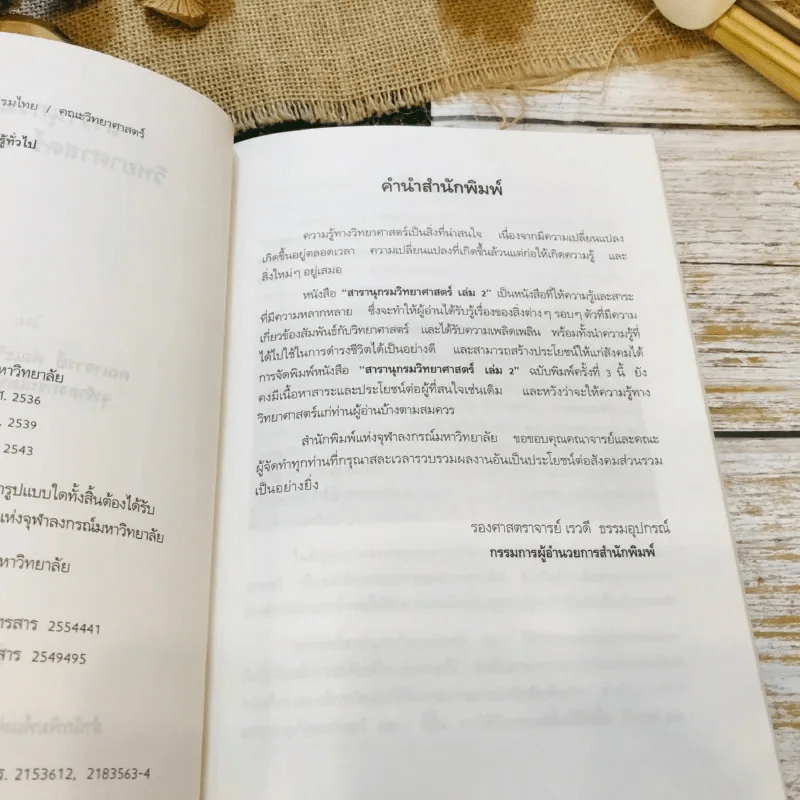 รมไทย / คณะวิทยาศาสตร์
รู้ทั่วไป
หาวิทยาลัย
ศ. 2536
. 2539
2543
ารูปแบบใดทั้งสิ้นต้องได้รับ
แห่งจุฬาลงกรณ์มหาวิทยาลัย
หาวิทยาลัย
ทรสาร 2554441
สาร 2549495
ร. 2153612, 2183563-4
คำนำสำนักพิมพ์
ความรู้ทางวิทยาศาสตร์เป็นสิ่งที่น่าสนใจ เนื่องจากมีความเปลี่ยนแปลง
เกิดขึ้นอยู่ตลอดเวลา ความเปลี่ยนแปลงที่เกิดขึ้นล้วนแต่ก่อให้เกิดความรู้ และ
สิ่งใหม่ๆ อยู่เสมอ
หนังสือ "สารานุกรมวิทยาศาสตร์ เล่ม 2" เป็นหนังสือที่ให้ความรู้และสาระ
ที่มีความหลากหลาย ซึ่งจะทำให้ผู้อ่านได้รับรู้เรื่องของสิ่งต่างๆ รอบๆ ตัวที่มีความ
เกี่ยวข้องสัมพันธ์กับวิทยาศาสตร์ และได้รับความเพลิดเพลิน พร้อมทั้งนำความรู้ที่
ได้ไปใช้ในการดำรงชีวิตได้เป็นอย่างดี และสามารถสร้างประโยชน์ให้แก่สังคมได้
การจัดพิมพ์หนังสือ "สารานุกรมวิทยาศาสตร์ เล่ม 2" ฉบับพิมพ์ครั้งที่ 3 นี้ ยัง
คงมีเนื้อหาสาระและประโยชน์ต่อผู้ที่สนใจเช่นเดิม และหวังว่าจะให้ความรู้ทาง
วิทยาศาสตร์แก่ท่านผู้อ่านบ้างตามสมควร
สำนักพิมพ์แห่งจุฬาลงกรณ์มหาวิทยาลัย ขอขอบคุณคณาจารย์และคณะ
ผู้จัดทำทุกท่านที่กรุณาสละเวลารวบรวมผลงานอันเป็นประโยชน์ต่อสังคมส่วนรวม
เป็นอย่างยิ่ง
รองศาสตราจารย์ เรวดี ธรรมอุปกรณ์
กรรมการผู้อำนวยการสำนักพิมพ์